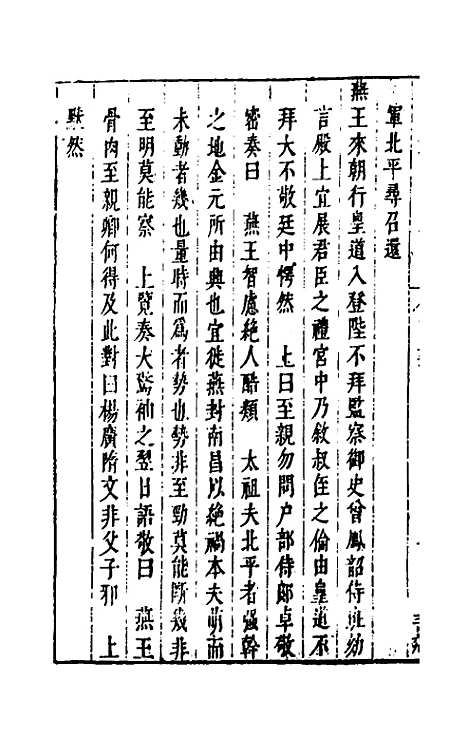 軍北平尋召還
燕王來朝行皇道入登陛不拜監察御史曾鳳韶侍班劾
言殿上宜展君臣之禮宮中乃敘叔侄之倫由皇道不
拜大不敬廷中愕然　上曰至親勿問户部侍郎卓敬
密奏曰　燕王智慮絶人酷類　太祖夫北平者強幹
之地金元所由興也宜徙燕封南昌以絶禍本夫萌而
未動者幾也量時而爲者勢也勢非至勁莫能斷幾非
至明莫能察　上覽奏大驚袖之翌日語敬曰　燕王
骨肉至親卿何得及此對曰楊廣隋文非父子邪　上
黙然